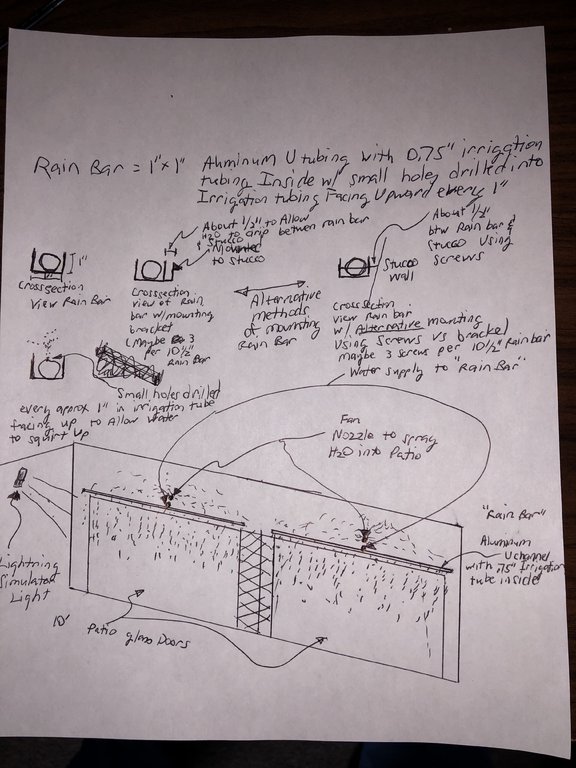 Rain Bar = 1"x1" Aluminum U tubing with 0.75" irrigation
tubing Inside w/ small holes drilled into
Irrigation tubing Facing Upward every 1"
About 1/2" to Allow
H2O to drip between rain bar
& Stucco
Mounted
to stucco
1"
Crosssection
View Rain Bar
Crosssection
view of Rain
bar w/mounting
bracket
(Maybe 3
per 10 1/2"
Rain Bar
Alternative
methods
of mounting
Rain Bar
About 1/2"
btw Rain bar &
Stucco Using
Screws
Stucco
Wall
Crossection
view Rain bar
w/ Alternative mounting
Using Screws vs bracket
maybe 3 screws per 10 1/2" Rain bar
Small holes drilled
every approx 1" in irrigation tube
facing up to Allow water
to squirt up
Water supply to "Rain Bar"
Fan
Nozzle to spray
H2O into Patio
"Rain Bar"
Aluminum
U channel
with .75" Irrigation
tube inside
Lightning
Simulated
Light
10'
Patio glass Doors